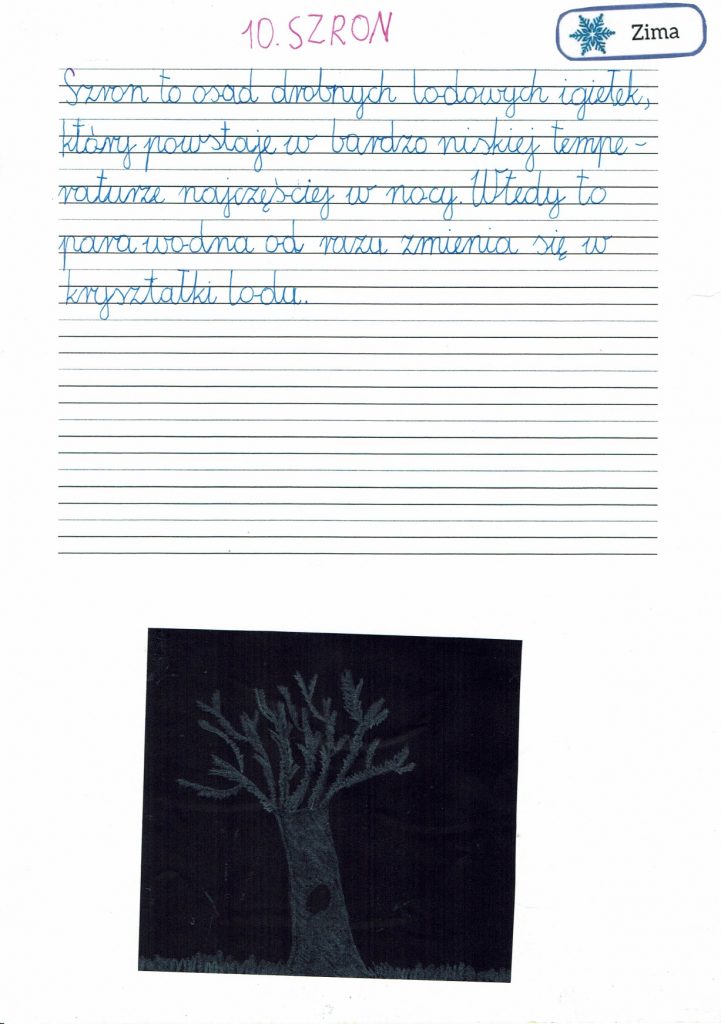 10. SZRON
Zima
Szron to osad drobnych lodowych igiełek,
który powstaje w bardzo niskiej tempe-
raturze najczęściej w nocy. Wtedy to
para wodna od razu zmienia się w
kryształki lodu.